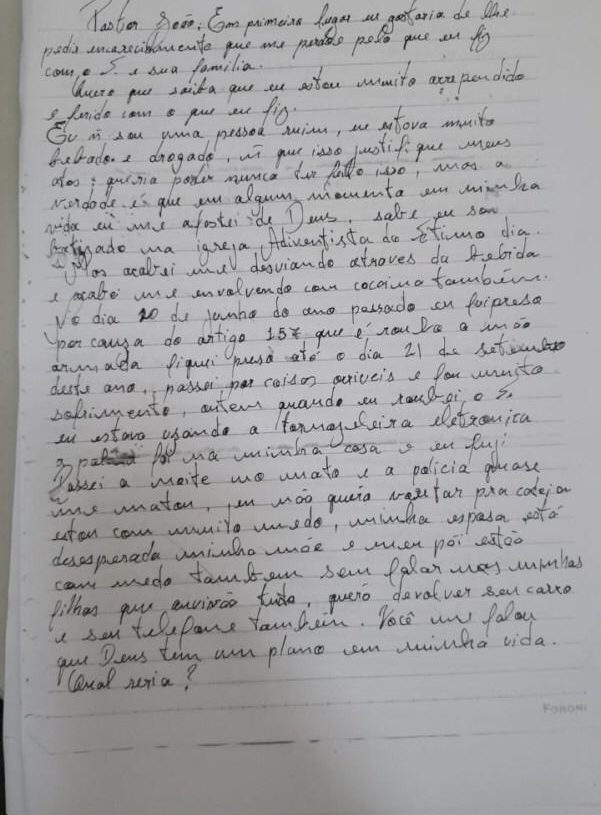 Pastor João; Em primeiro lugar eu gostaria de lhe
pedir encarecidamente que me perdoe pelo que eu fiz
com o S. e sua família.
Quero que saiba que eu estou muito arrependido
e ferido com o que eu fiz.
Eu ñ sou uma pessoa ruim, eu estava muito
bebado e drogado, ñ que isso justifique meus
atos; queria poder nunca ter feito isso, mas a
verdade é que em algum momento em minha
vida eu me afastei de Deus, sabe eu sou
batizado na igreja Adventista do Sétimo dia.
Mas acabei me desviando atraves da bebida
e acabei me envolvendo com cocaina também.
No dia 20 de junho do ano passado eu fui preso
por causa do artigo 157 que é roubo a mão
armada fiquei preso até o dia 21 de setembro
deste ano, passei por coisas orriveis e fou muito
sofrimento, ontem quando eu roubei o S.
eu estava usando a tornozeleira eletronica
a foi na minha casa e eu fugi
Passei a noite no mato e a policia quase
me matou, eu não quero voutar pra cadeia
estou com muito medo, minha esposa está
desesperada minha mãe e meu pai estão
com medo tambem sem falar nas minhas
filhas que tudo, quero devolver seu carro
e seu telefone também. Você me falou
que Deus tem um plano em minha vida.
Qual seria?
FORONI